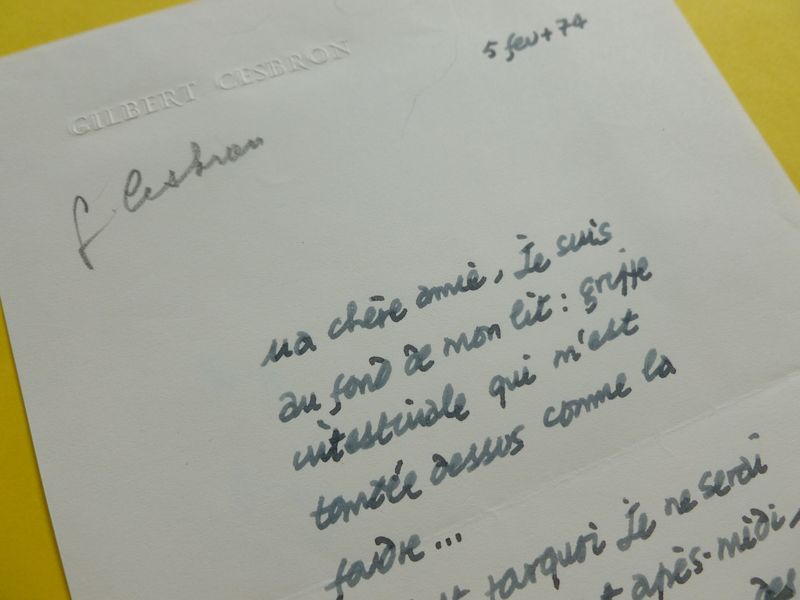 GILBERT CESBRON
5 fev + 74
G Cesbron
Ma chère amie, Je suis
au fond de mon lit : grippe
intestinale qui m'est
tombée dessus comme la
foudre ...
pourquoi Je ne serai
après-midi,
des